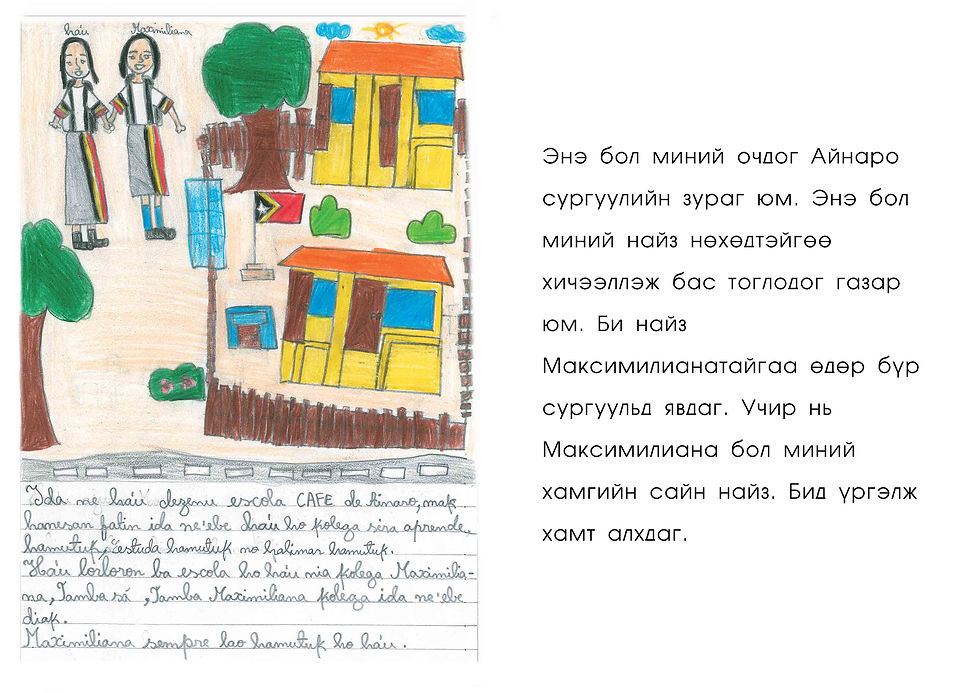 háu Maximiliana
Ida ne háu dezenu escola CAFE de Ainaro, mak
hanesan fatin ida ne'ebe háu ho kolega sira aprende
hamutuk, estuda hamutuk no halimar hamutuk.
Háu lorloron ba escola ho háu nia kolega Maximilia-
na, Tamba sá, Tamba Maximiliana kolega ida ne'ebe
diak.
Maximiliana sempre lao hamutuk ho háu.
Энэ бол миний очдог Айнаро
сургуулийн зураг юм. Энэ бол
миний найз нөхөдтэйгөө
хичээллэж бас тоглодог газар
юм. Би найз
Максимилианатайгаа өдөр бүр
сургуульд явдаг. Учир нь
Максимилиана бол миний
хамгийн сайн найз. Бид үргэлж
хамт алхдаг.